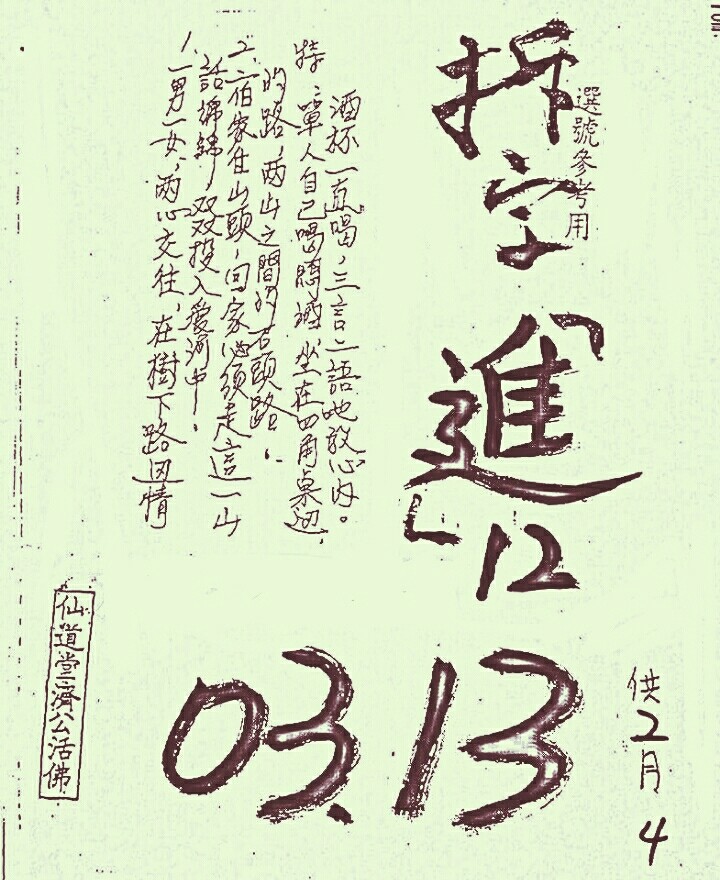 選號參考用
拆字「進」12
03.13
供2月4
1、一男一女，兩心交往，在樹下路边情
話綿綿，双双投入愛河中。
2、一伯家住山頭，回家必須走這一山
的路，兩山之間的石頭路。
特、單人自己喝悶酒，坐在四角桌边，
酒杯一直喝，三言二語吔放心內。
仙道堂濟公活佛